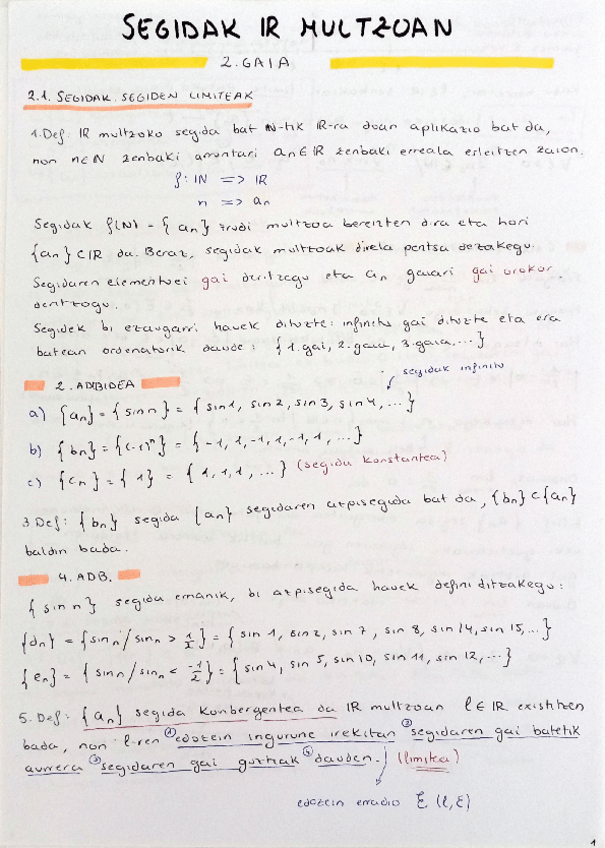 SEGIDAK IR MULTZOAN
2. GAIA
2.1. SEGIDAK. SEGIDEN LIMITEAK
1. Def: IR multzoko segida bat IN-tik IR-ra doan aplikazio bat da,
non n∈IN zenbaki arruntari an∈IR zenbaki erreala esleitzen zaion.
f: IN => IR
n => an
Segidak f(N) = { an } irudi multzoa bereizten dira eta hori
{an} ⊂ IR da. Beraz, segidak multzoak direla pentsa dezakegu.
Segidaren elementuei gai deritzegu eta an gaiari gai orokor
deritzogu.
Segidek bi ezaugarri hauek dituzte: infinitu gai dituzte eta era
batean ordenatorik daude: { 1. gai, 2. gaia, 3. gaia, ... }
segidak infinitu
2. ADIBIDEA
a) {an} = { sin n } = { sin 1, sin 2, sin 3, sin 4, ... }
b) { bn } = { (-1)^n } = { -1, 1, -1, 1, -1, 1, ... }
c) { cn } = { 1 } = { 1, 1, 1, ... } (segida konstantea)
3. Def: { bn } segida {an} segidaren azpisegida bat da, {bn} ⊂ {an}
baldin bada.
4. ADB.
{ sin n } segida emanik, bi azpisegida hauek defini ditzakegu:
{dn} = { sin n / sin n > 1/2 } = { sin 1, sin 2, sin 7, sin 8, sin 14, sin 15, ... }
{ en } = { sin n / sin n < -1/2 } = { sin 4, sin 5, sin 10, sin 11, sin 12, ... }
5. Def: {an} segida konbergentea da IR multzoan l∈IR existitzen
bada, non l-ren ① edozein ingurune irekitan ② segidaren gai batetik
aurrera ③ segidaren gai guztiak ④ dauden. (limitea)
edozein erradio E (l, ε)
1